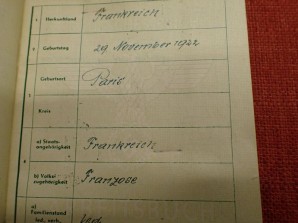 1 Herkunftsland Frankreich
2. Geburtstag 29. November 1922
3. Geburtsort Paris
Kreis
4. a) Staats-
angehörigkeit Frankreich
b) Volks-
zugehörigkeit Franzose
a)
Familienstand
led., verh.
led.